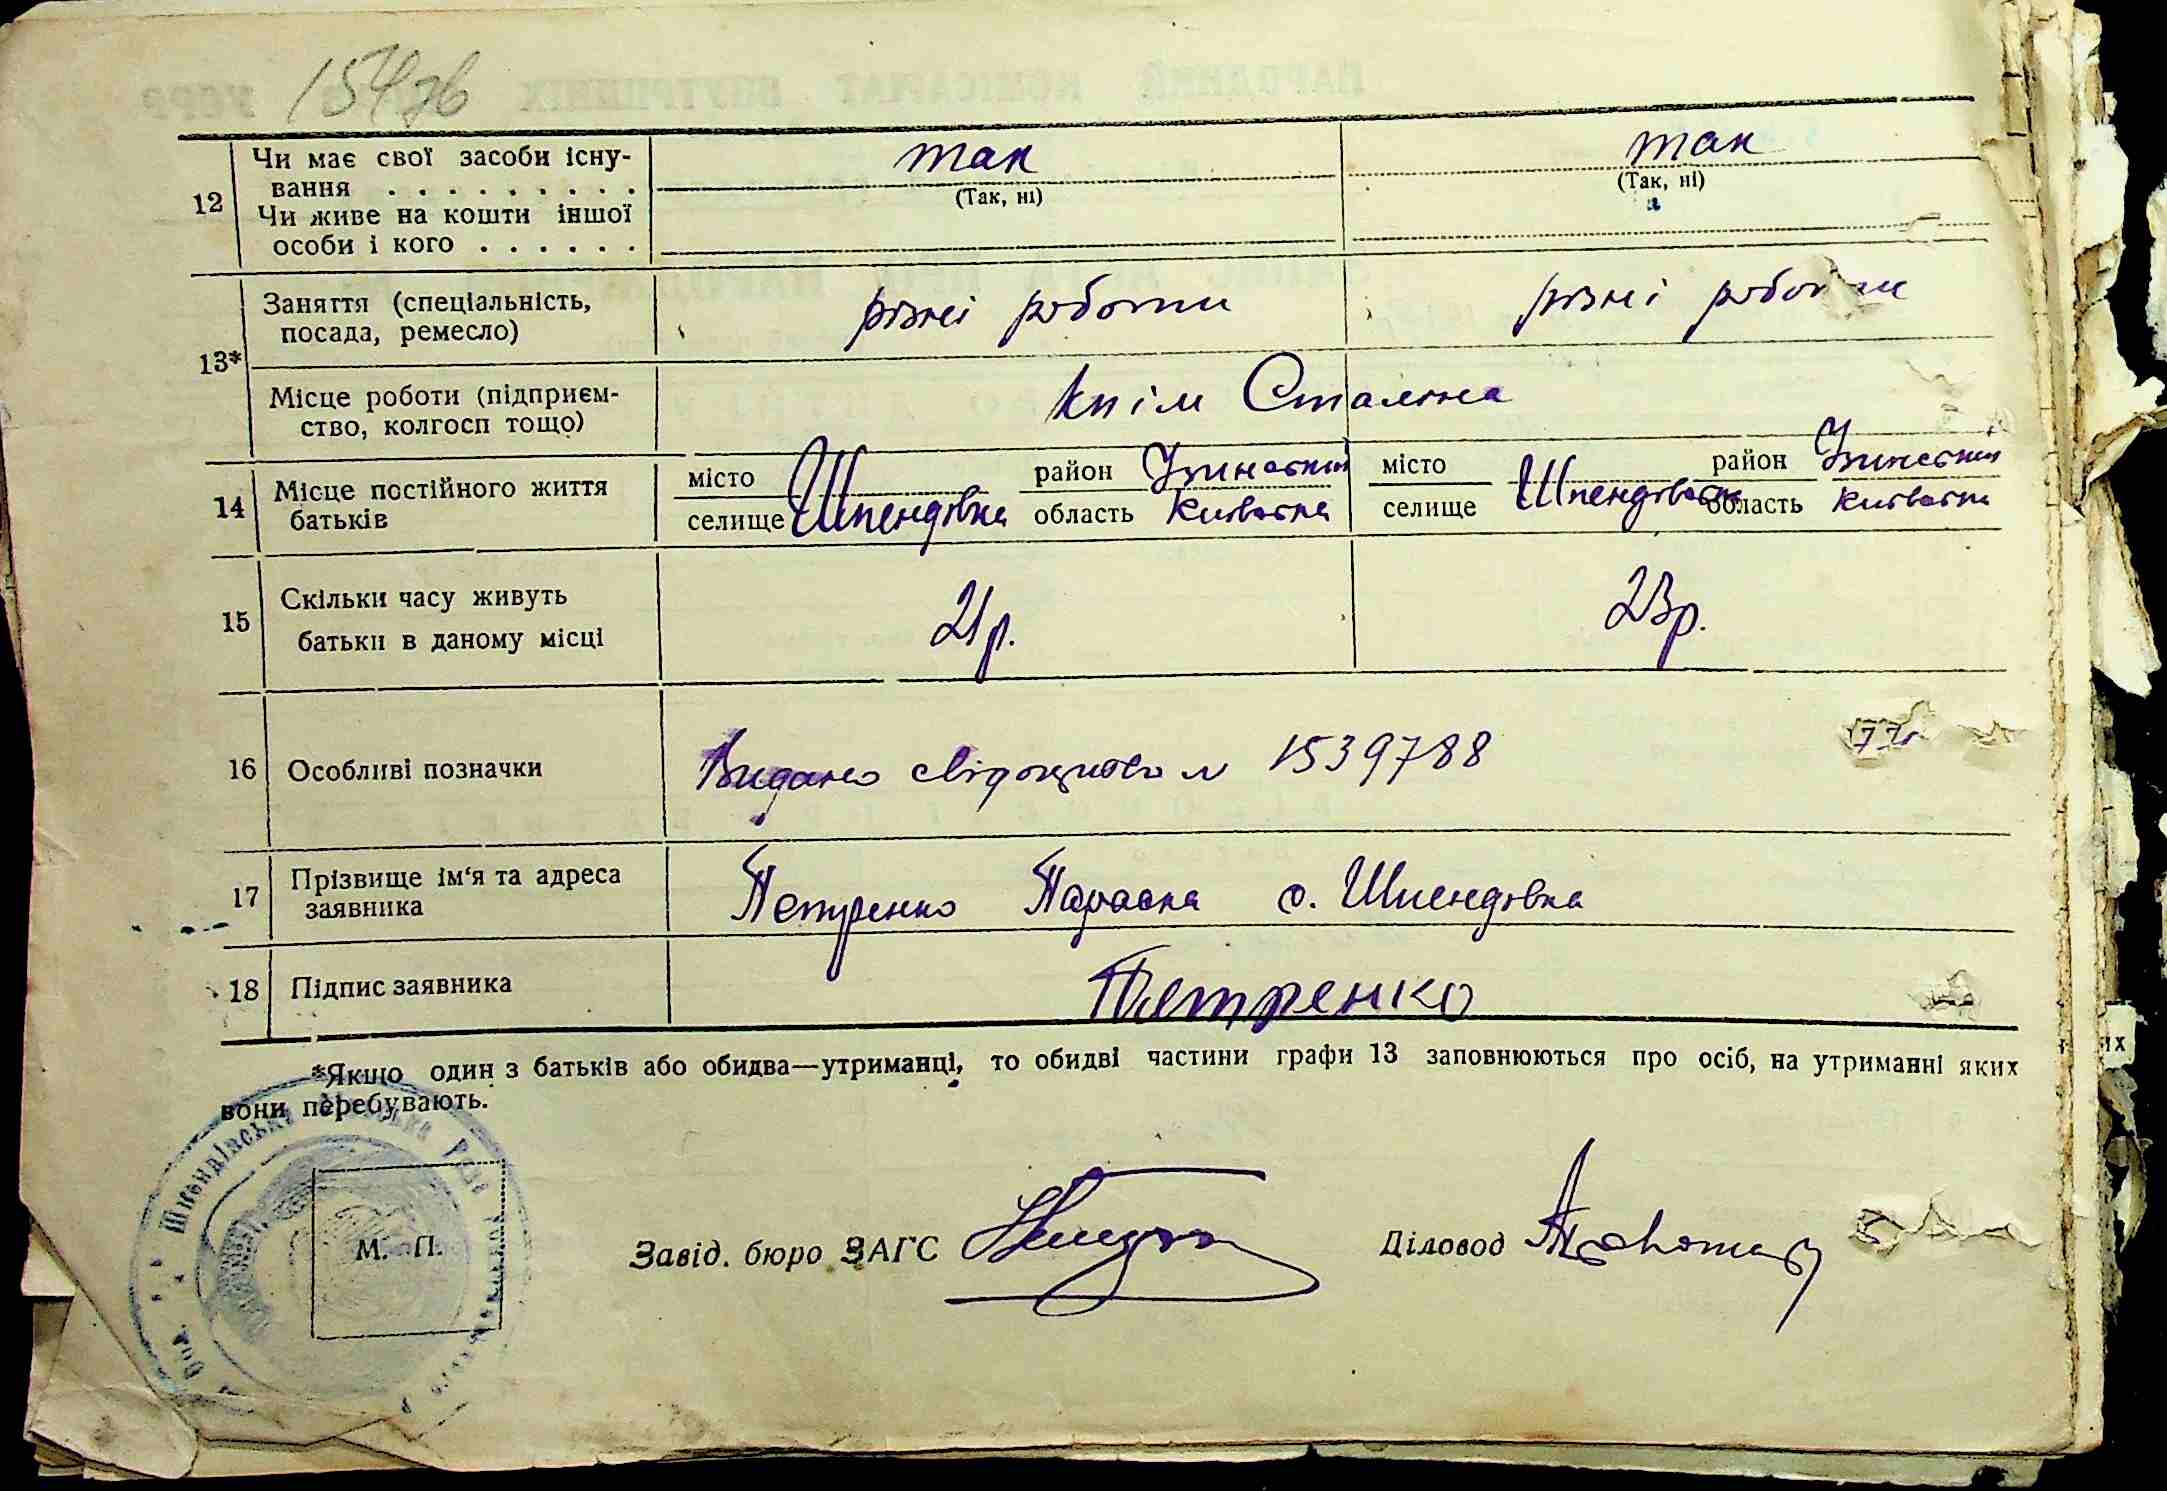 154зв
12 Чи має свої засоби існу- так так
вання . . . . . . . . . (Так, ні) (Так, ні)
Чи живе на кошти іншої
особи і кого . . . . . .
13* Заняття (спеціальність, різні роботи різні роботи
посада, ремесло)
Місце роботи (підприєм- імі Сталіна
ство, колгосп тощо)
14 Місце постійного життя місто район Узинський місто район Узинський
батьків селище Шпендівка область Київська селище Шпендівка область Київська
15 Скільки часу живуть 21р. 23р.
батьки в даному місці
16 Особливі позначки Видано свідоцтво № 1539788
17 Прізвище ім'я та адреса Петренко Параска с. Шпендівка
заявника
18 Підпис заявника Петренко
*Якщо один з батьків або обидва—утриманці, то обидві частини графи 13 заповнюються про осіб, на утриманні яких
вони перебувають.
Шпендівська Рада
М. П.
Завід. бюро ЗАГС Діловод